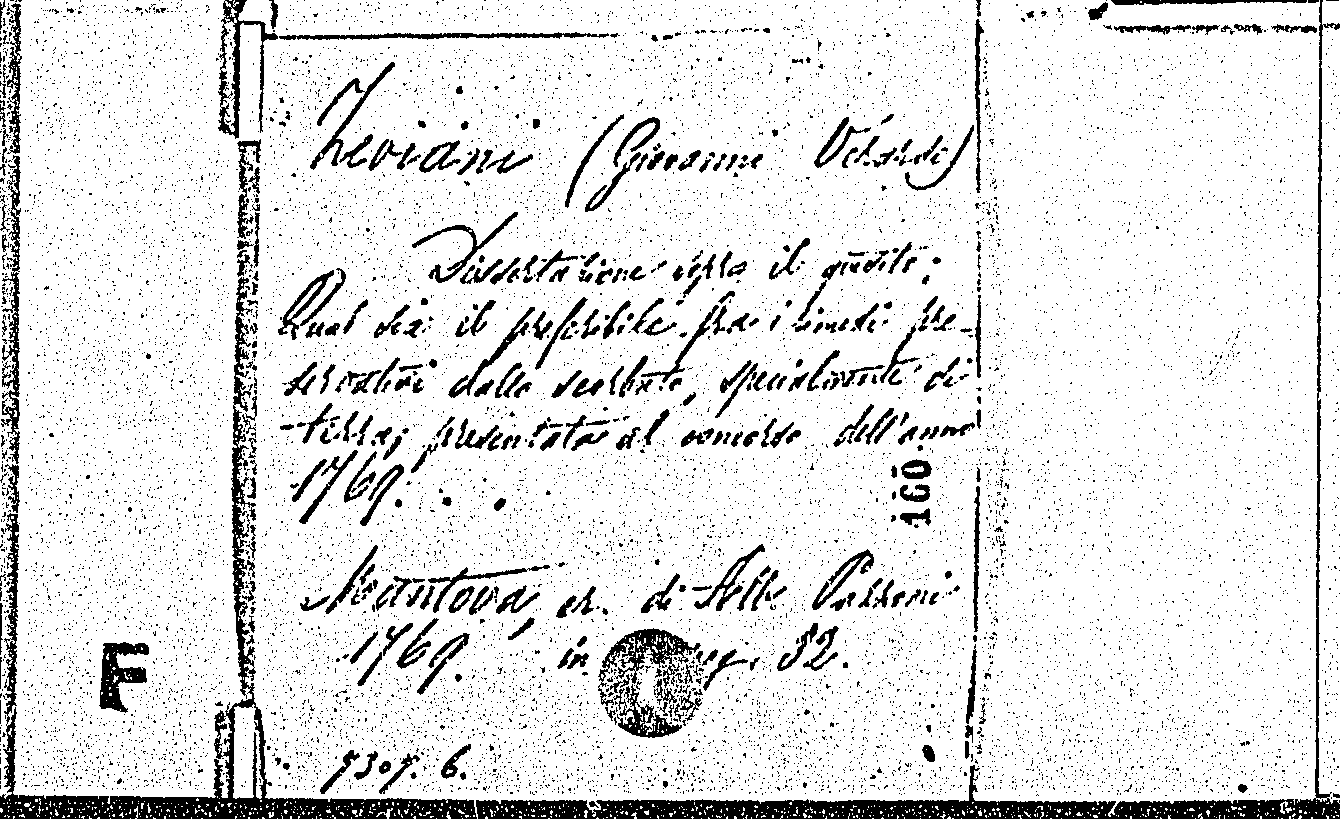 Zeviani (Giovanni Verardo)
Dissertazione sopra il quesito:
Qual sia il preferibile fra i rimedi pre-
servativi dallo scorbuto, specialmente di
terra; presentata al concorso dell'anno
1769.
160
Mantova, er. di Alb. Pazzoni
1769. in pag. 32.
F
7307. 6.